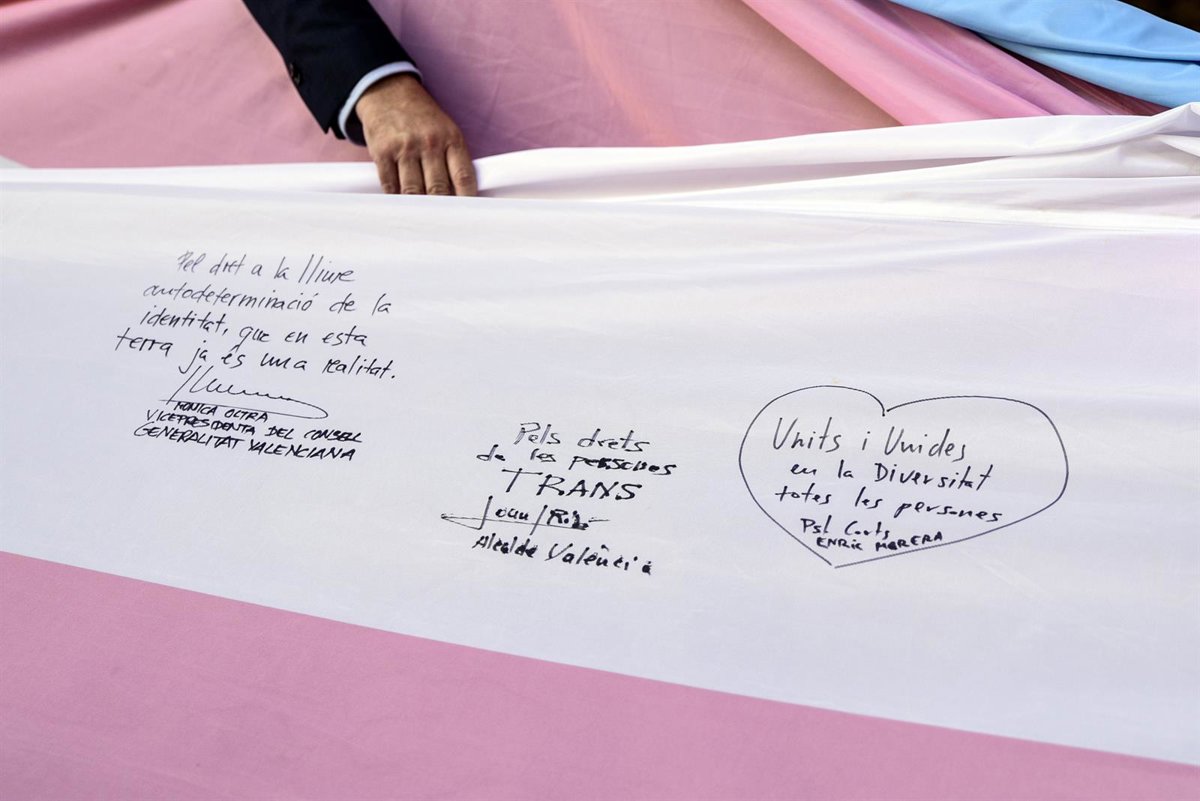 Pel dret a la lliure
autodeterminació de la
identitat, que en esta
terra ja és una realitat.
MONICA OLTRA
VICEPRESIDENTA DEL CONSELL
GENERALITAT VALENCIANA
Pels drets
de les persones
TRANS
Joan Ribó
Alcalde València
Units i Unides
en la Diversitat
totes les persones
Pst Corts
ENRIC MORERA